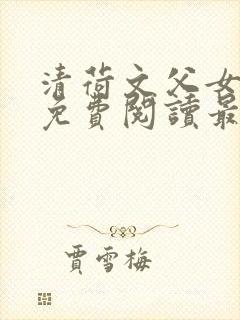 清荷文父女
免費閱讀最
賈雪梅